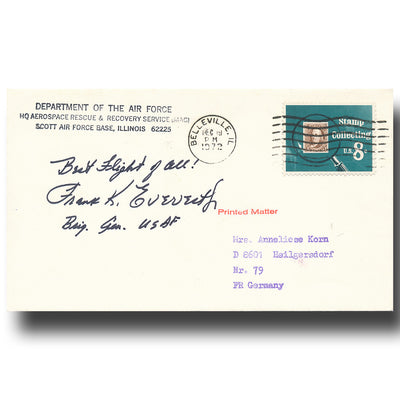 DEPARTMENT OF THE AIR FORCE
HQ AEROSPACE RESCUE & RECOVERY SERVICE (MAC)
SCOTT AIR FORCE BASE, ILLINOIS 62225
BELLEVILLE, IL
DEC
PM
1972
Stamp
Collecting
U.S. 8c
Best Flight of All!
Frank K. Everest Jr
Brig. Gen. USAF
Printed Matter
Mrs. Anneliese Korn
D 8601 Heilgersdorf
Nr. 79
FR Germany